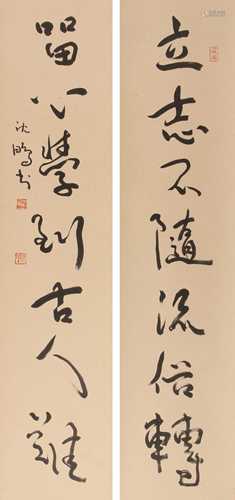 立志不随流俗轉
留心學到古人難
沈鵬书